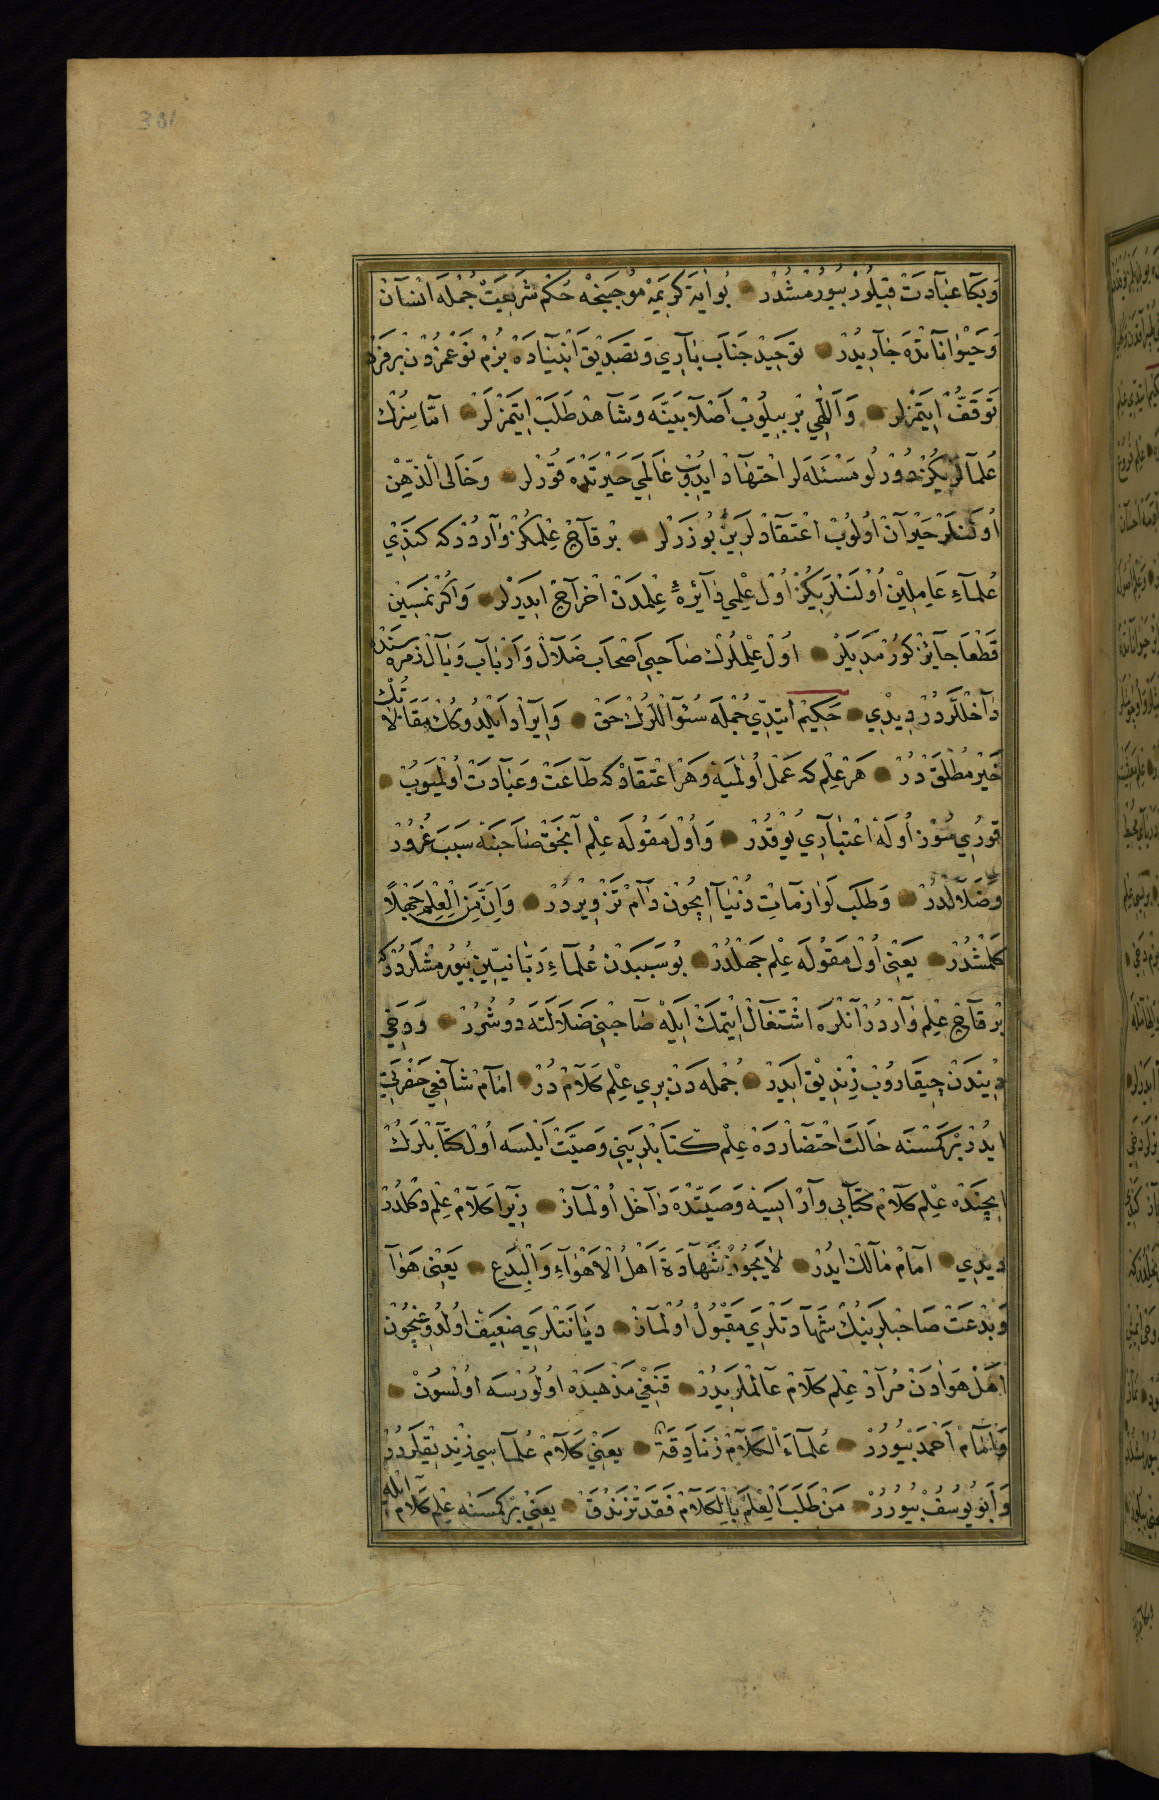 301
وَبَكَا عِبَادَتْ قِيلُورْ بُيُورْمِشْدُرْ بُو اٰيَۀ كَرِيمَه مُوجَبِنْجَه حُكْمِ شَرِيعَتْ جُمْلَه اِنْسَانْ
وَحَيْوَانَاتْدَه جَارِيدُرْ تَوْحِيدِ جَنَابِ بَارِي وَتَصْدِيقِ اَنْبِيَادَه بِزُمْ نَوْعُمُزْدَنْ بِرْ فَرْد
تَوَقُّفْ اِيتْمَزْلَرْ وَاللّٰهِي بِرْ بِيلُوبْ اَصْلَا بَيِّنَه وَشَاهِدْ طَلَبْ اِيتْمَزْلَرْ اَمَّا سِزُكْ
عُلَمَالَرِيكُزْ دُورْلُو مَسْئَلَه لَرْ اجْتِهَادْ ايدُوبْ عَالَمِي حَيْرَتْدَه قُورْلَرْ وَخَالِى الذِّهِنْ
اُولَنْلَرْ حَيْرَانْ اُولُوبْ اعْتِقَادْلَرِينْ بُوزَرْلَرْ بِرْ قَاچْ عِلْمِكُزْ وَارْدُرْكه كَنْدِي
عُلَمَاءِ عَامِلِينْ اُولَنْلَرِيكُزْ اُولْ عِلْمِي دَائِرَۀ عِلْمدَنْ اخْرَاجْ ايدَرْلَرْ وَاكُرْنَمْسِينْ
قَطْعَا جَائِزْ كُورْمَدِيلَرْ اُولْ عِلْمْلَرُكْ صَاحِبِي اَصْحَابِ ضَلَالْ وَاَرْبَابِ وَبَالْ زمره سَنْدَه
دَاخْلَلَرْدُرْ دِيدِي حَكِيمْ ايتدِي جُمْلَه سُئَوالْلَرُكْ حَقْ وَايرَادْ ايلَدُوكُكْ مَقَالَاتُكْ
خَيْرِ مُطْلَقْ دُرْ هَرْ عِلْم كه عَمَلْ اُولْمَيَه وَهَرْ اعْتِقَادْ كه طَاعَتْ وَعِبَادَتْ اُولْمَيُوبْ
قورِي سُوزْ اُولَه اعْتِبَارِي يُوقْدُرْ وَاُولْ مَقُولَه عِلْم آنْجَقْ صَاحِبْنَه سَبَبِ غُرُورْ
وَضَلَالْدُرْ وَطَلَبِ لَوَازِمَاتِ دُنْيَا اِيچُونْ دَامِ تَزْوِيرْ دُرْ وَاِنَّ مِنَ الْعِلْمِ جَهْلًا
كَلمشْدُرْ يَعْنِى اُولْ مَقُولَه عِلْم جَهِلْدُرْ بُو سَبَبْدَنْ عُلَمَاءِ رَبَّانِيِّينْ بُيُورْمِشْلَرْدُرْكه
بِرْ قَاچْ عِلْم وَارْدُرْ آنْلَرَه اشْتِغَالْ ايتْمَكْ ايلَه صَاحِبْنِي ضَلَالَتَه دُوشُرُرْ وَدَخِي
دِينْدَنْ چِيقَارُوبْ زِنْدِيقْ ايدَرْ جُمْلَه دَنْ بِرِي عِلْمِ كَلَامْ دُرْ امَامْ شَافِعِي حَضْرَتِي
ايدُرْ بِرْ كَمْسَنَه حَالَتِ احْتِضَارْدَه عِلْم كِتَابْلَرِينِي وَصِيَّتْ ايلَسَه اُولْ كِتَابْلَرُكْ
ايچِنْدَه عِلْمِ كَلَامْ كِتَابِي وَارْ ايسَه وَصِيَّتْدَه دَاخِلْ اُولْمَازْ زِيرَا كَلَامْ عِلْم دكُلْدُرْ
دِيدِي امَامْ مَالِكْ ايدُرْ لَا يَجُوزُ شَهَادَةُ اَهْلِ الْاَهْوَاءِ وَالْبِدَعِ يَعْنِى هَوَا
وَبِدْعَتْ صَاحِبْلَرِينُكْ شَهَادَتْلَرِي مَقْبُولْ اُولْمَازْ دِيَانَتْلَرِي ضَعِيفْ اُولْدُوغِيچُونْ
اَهْلِ هَوَادَنْ مُرَادْ عِلْمِ كَلَامْ عَالِمْلَرِيدُرْ قَنْغِي مَذْهَبْدَه اُولُورْسَه اُولْسُونْ
وَامَامْ اَحْمَدْ بُيُورُرْ عُلَمَاءُ الْكَلَامِ زَنَادِقَةٌ يَعْنِي كَلَامْ عُلَمَاسِي زِنْدِيقْلَرْدُرْ
وَاَبُو يُوسُفْ بُيُورُرْ مَنْ طَلَبَ الْعِلْمَ بِالْكَلَامْ فَقَدْ تَزَنْدَقَ يَعْنِي بِرْ كَمْسَنَه عِلْمِ كَلَامْ ايلَه